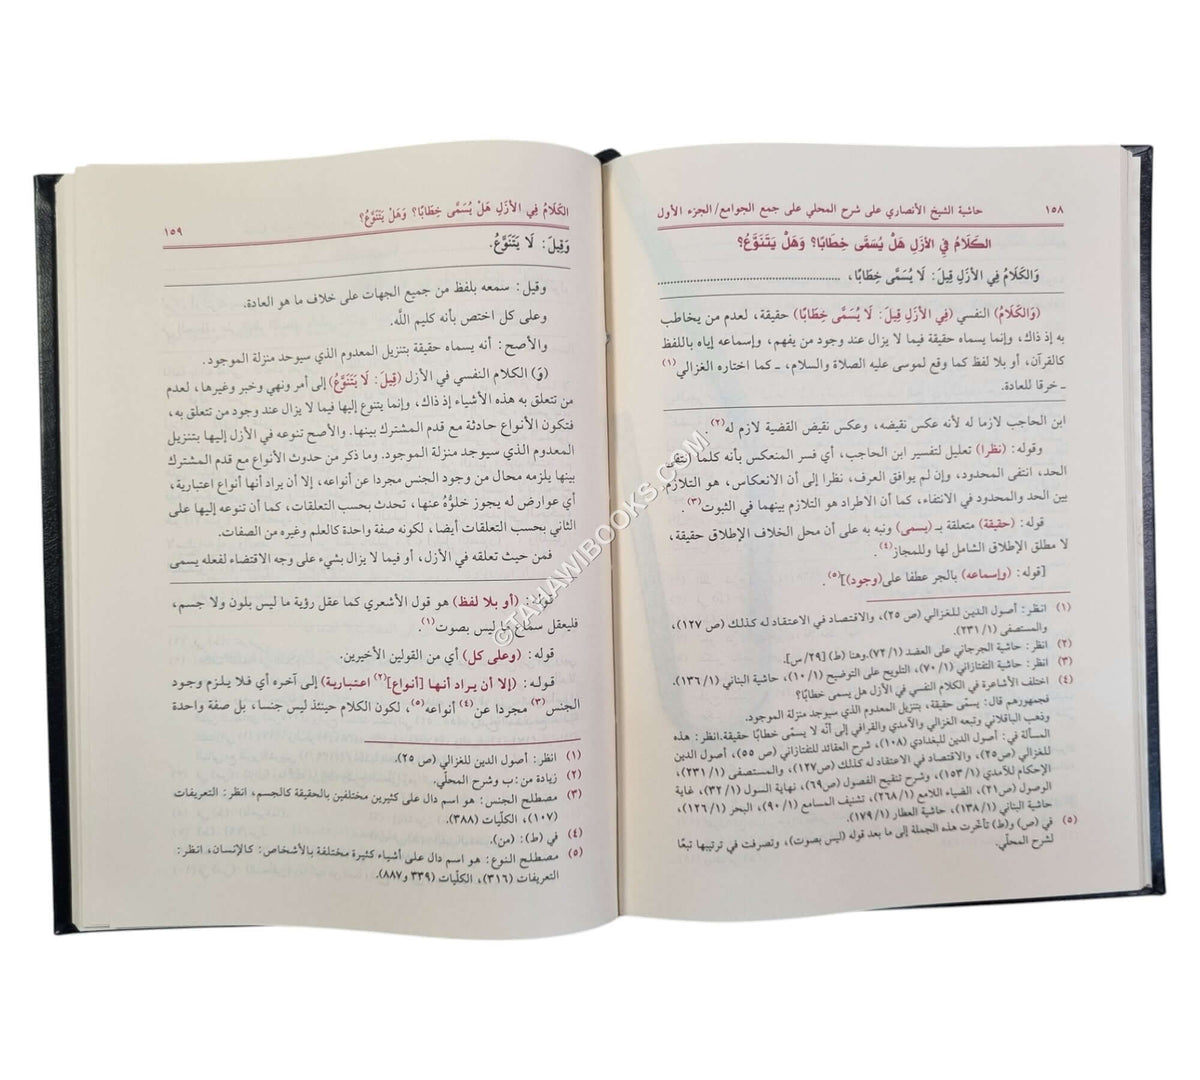 ١٥٨ حاشية الشيخ الأنصاري على شرح المحلي على جمع الجوامع/الجزء الأول
الكَلَامُ فِي الأَزَلِ هَلْ يُسَمَّى خِطَابًا؟ وَهَلْ يَتَنَوَّعُ؟
وَالكَلَامُ فِي الأَزَلِ قِيلَ: لَا يُسَمَّى خِطَابًا،
(وَالكَلَامُ) النفسي (فِي الأَزَلِ قِيلَ: لَا يُسَمَّى خِطَابًا) حقيقة، لعدم من يخاطب
به إذ ذاك، وإنما يسماه حقيقة فيما لا يزال عند وجود من يفهم، وإسماعه إياه باللفظ
كالقرآن، أو بلا لفظ كما وقع لموسى عليه الصلاة والسلام، ـ كما اختاره الغزالي (١)
ـ خرقا للعادة.
ابن الحاجب لازما له لأنه عكس نقيضه، وعكس نقيض القضية لازم له (٢).
وقوله: (نظرا) تعليل لتفسير ابن الحاجب، أي فسر المنعكس بأنه كلما انتفى
الحد، انتفى المحدود، وإن لم يوافق العرف، نظرا إلى أن الانعكاس، هو التلازم
بين الحد والمحدود في الانتفاء، كما أن الاطراد هو التلازم بينهما في الثبوت (٣).
قوله: (حقيقة) متعلقة بـ (يسمى) ونبه به على أن محل الخلاف الإطلاق حقيقة،
لا مطلق الإطلاق الشامل لها وللمجاز (٤).
[قوله: (وإسماعه) بالجر عطفا على (وجود)] (٥).
(١) انظر: أصول الدين للغزالي (ص ٢٥)، والاقتصاد في الاعتقاد له كذلك (ص ١٢٧)،
والمستصفى (١/ ٢٣١).
(٢) انظر: حاشية الجرجاني على العضد (١/ ٧٢). وهنا (ط) [٢٩/ س].
(٣) انظر: حاشية التفتازاني (١/ ٧٠)، التلويح على التوضيح (١/ ١٠)، حاشية البناني (١/ ١٣٦).
(٤) اختلف الأشاعرة في الكلام النفسي في الأزل هل يسمى خطابًا؟
فجمهورهم قال: يسمّى حقيقة، بتنزيل المعدوم الذي سيوجد منزلة الموجود.
وذهب الباقلاني وتبعه الغزالي والآمدي والقرافي إلى أنّه لا يسمّى خطابًا حقيقة. انظر: هذه
المسألة في: أصول الدين للبغدادي (١٠٨)، شرح العقائد للتفتازاني (ص ٥٥)، أصول الدين
للغزالي (ص ٢٥)، والاقتصاد في الاعتقاد له كذلك (ص ١٢٧)، والمستصفى (١/ ٢٣١)،
الإحكام للآمدي (١/ ١٥٣)، وشرح تنقيح الفصول (ص ٦٩)، نهاية السول (١/ ٣٢)، غاية
الوصول (ص ٢١)، الضياء اللامع (١/ ٢٦٨)، تشنيف المسامع (١/ ٩٠)، البحر (١/ ١٢٦)،
حاشية البناني (١/ ١٣٨)، حاشية العطار (١/ ١٧٩).
(٥) في (ص) و(ط) تأخّرت هذه الجملة إلى ما بعد قوله (ليس بصوت)، وتصرفت في ترتيبها تبعًا
لشرح المحلّي.
الكَلَامُ فِي الأَزَلِ هَلْ يُسَمَّى خِطَابًا؟ وَهَلْ يَتَنَوَّعُ؟ ١٥٩
وَقِيلَ: لَا يَتَنَوَّعُ.
وقيل: سمعه بلفظ من جميع الجهات على خلاف ما هو العادة.
وعلى كل اختص بأنه كليم اللَّه.
والأصح: أنه يسماه حقيقة بتنزيل المعدوم الذي سيوجد منزلة الموجود.
(وَ) الكلام النفسي في الأزل (قِيلَ: لَا يَتَنَوَّعُ) إلى أمر ونهي وخبر وغيرها، لعدم
من تتعلق به هذه الأشياء إذ ذاك، وإنما يتنوع إليها فيما لا يزال عند وجود من تتعلق به،
فتكون الأنواع حادثة مع قدم المشترك بينها. والأصح تنوعه في الأزل إليها بتنزيل
المعدوم الذي سيوجد منزلة الموجود. وما ذكر من حدوث الأنواع مع قدم المشترك
بينها يلزمه محال من وجود الجنس مجردا عن أنواعه، إلا أن يراد أنها أنواع اعتبارية،
أي عوارض له يجوز خلوُّه عنها، تحدث بحسب التعلقات، كما أن تنوعه إليها على
الثاني بحسب التعلقات أيضا، لكونه صفة واحدة كالعلم وغيره من الصفات.
فمن حيث تعلقه في الأزل، أو فيما لا يزال بشيء على وجه الاقتضاء لفعله يسمى
قوله: (أو بلا لفظ) هو قول الأشعري كما عقل رؤية ما ليس بلون ولا جسم،
فليعقل سماع ما ليس بصوت (١).
قوله: (وعلى كل) أي من القولين الأخيرين.
قوله: (إلا أن يراد أنها [أنواع] (٢) اعتبارية) إلى آخره أي فلا يلزم وجود
الجنس (٣) مجردا عن (٤) أنواعه (٥)، لكون الكلام حينئذ ليس جنسا، بل صفة واحدة
(١) انظر: أصول الدين للغزالي (ص ٢٥).
(٢) زيادة من: ب وشرح المحلّي.
(٣) مصطلح الجنس: هو اسم دال على كثيرين مختلفين بالحقيقة كالجسم، انظر: التعريفات
(١٠٧)، الكلّيات (٣٨٨).
(٤) في (ط): (من).
(٥) مصطلح النوع: هو اسم دال على أشياء كثيرة مختلفة بالأشخاص: كالإنسان، انظر:
التعريفات (٣١٦)، الكلّيات (٣٣٩ و٨٨٧).
©TAHAWIBOOKS.COM